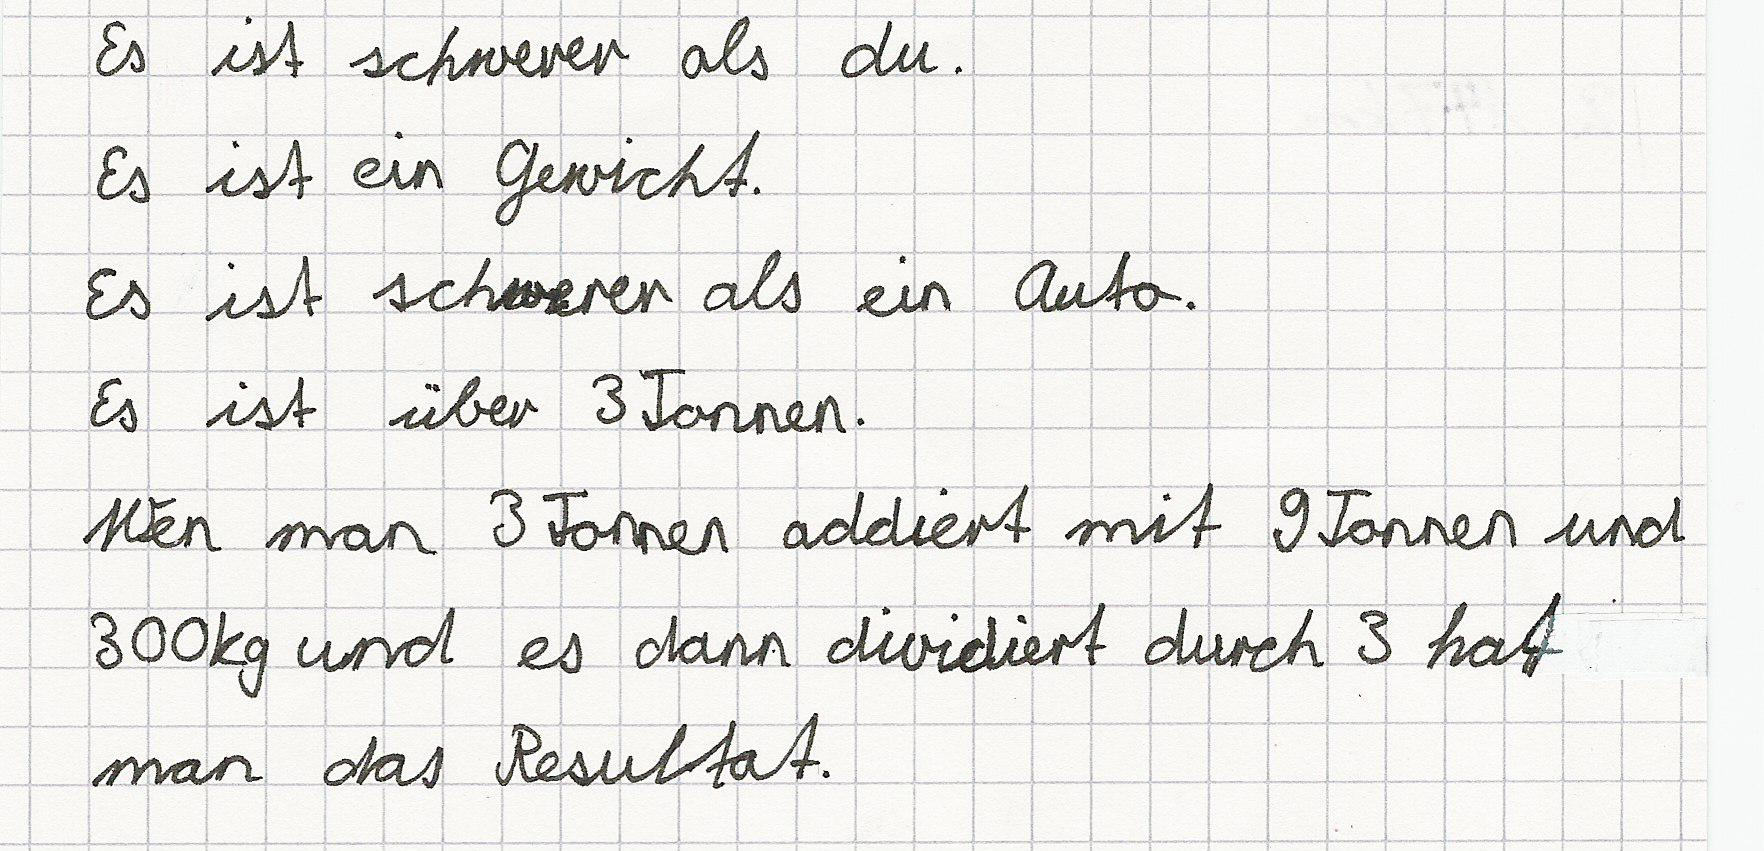 Es ist schwerer als du.
Es ist ein Gewicht.
Es ist schwerer als ein Auto.
Es ist über 3 Tonnen.
Wen̄ man 3 Tonnen addiert mit 9 Tonnen und
300kg und es dann dividiert durch 3 hat
man das Resultat.